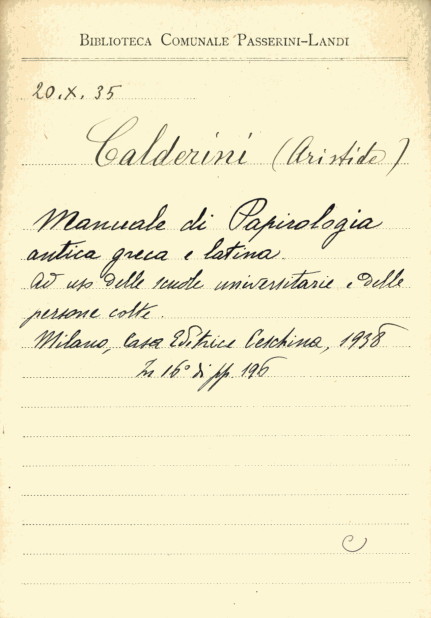 BIBLIOTECA COMUNALE PASSERINI-LANDI
20.X.35
Calderini (Aristide)
Manuale di Papirologia
antica greca e latina.
Ad uso delle scuole universitarie e delle
persone colte.
Milano, Casa Editrice Ceschina, 1938
In 16° di pp. 196
C